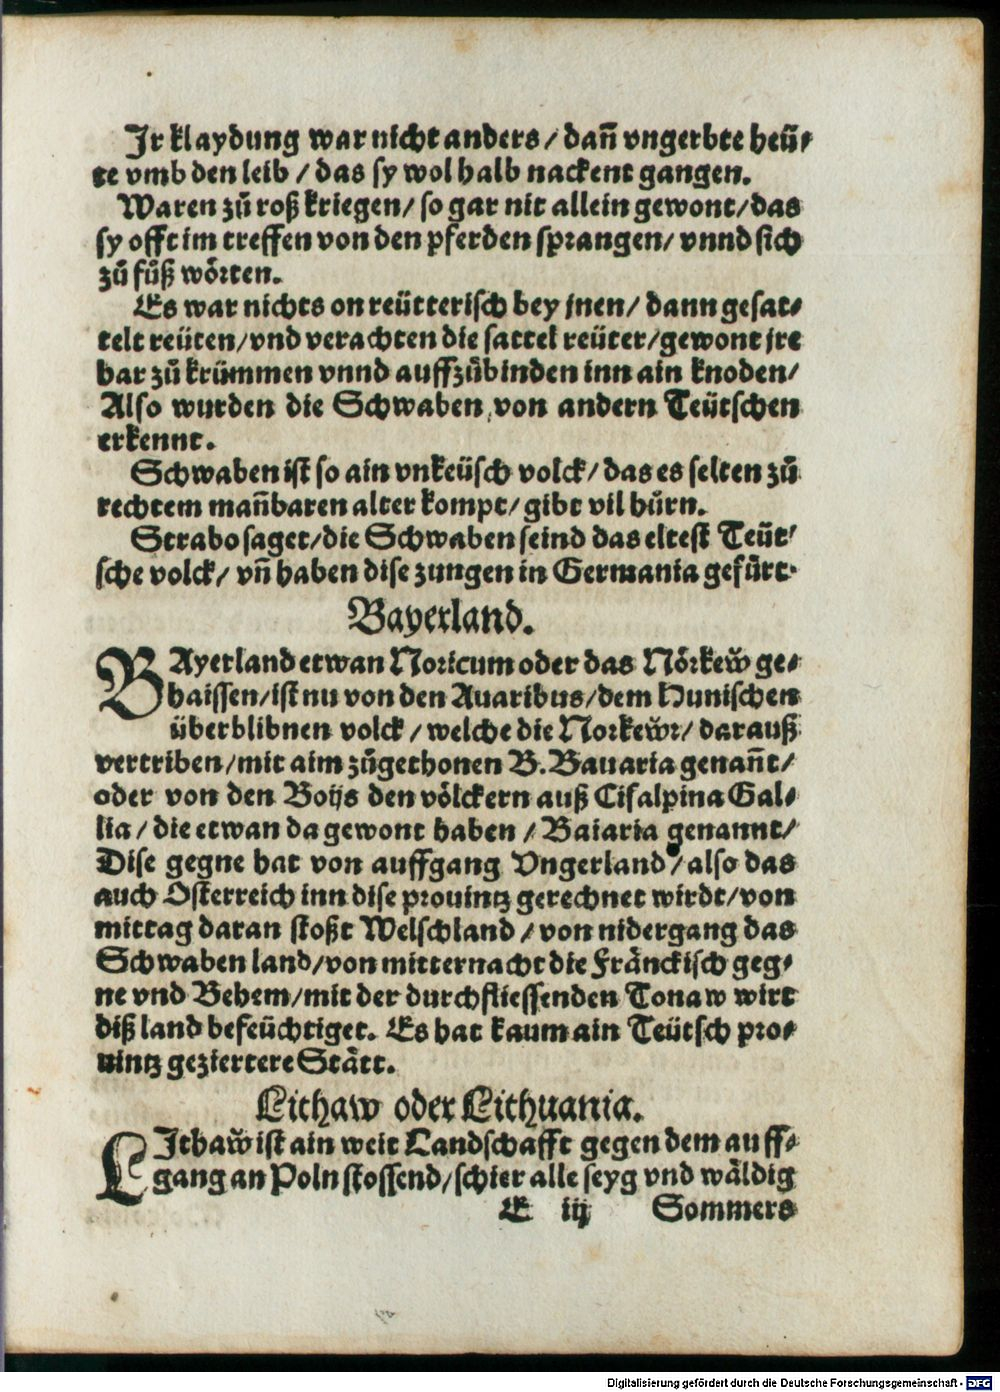 Jr klaydung war nicht anders / dañ vngerbte heü⸗
te vmb den leib / das sy wol halb nackent gangen.
Waren zů roß kriegen / so gar nit allein gewont / das
sy offt im treffen von den pferden sprangen / vnnd sich
zů fůß wörten.
Es war nichts on reütterisch bey jnen / dann gesat⸗
telt reüten / vnd verachten die sattel reüter / gewont jre
har zů krümmen vnnd auffzůbinden inn ain knoden /
Also wurden die Schwaben von andern Teütschen
erkennt.
Schwaben ist so ain vnkeüsch volck / das es selten zů
rechtem mañbaren alter kompt / gibt vil hůrn.
Strabo saget / die Schwaben seind das eltest Teüt⸗
sche volck / vñ haben dise zungen in Germania gefürt.
Bayerland.
BAyerland etwan Noricum oder das Nörkew̌ ge⸗
haissen / ist nu von den Auaribus / dem Hunischen
überblibnen volck / welche die Norkew̌r / darauß
vertriben / mit aim zůgethonen B. Bauaria genañt /
oder von den Boijs den völckern auß Cisalpina Gal⸗
lia / die etwan da gewont haben / Baiaria genannt /
Dise gegne hat von auffgang Vngerland / also das
auch Osterreich inn dise prouintz gerechnet wirdt / von
mittag daran stoßt Welschland / von nidergang das
Schwaben land / von mitternacht die Fränckisch geg⸗
ne vnd Behem / mit der durchfliessenden Tonaw wirt
diß land befeüchtiget. Es hat kaum ain Teütsch pro⸗
uintz geziertere Stätt.
Lithaw oder Lithuania.
LIthaw̌ ist ain weit Landschafft gegen dem auff⸗
gang an Poln stossend / schier alle seyg vnd wäldig
E iij Sommers
Digitalisierung gefördert durch die Deutsche Forschungsgemeinschaft - DFG